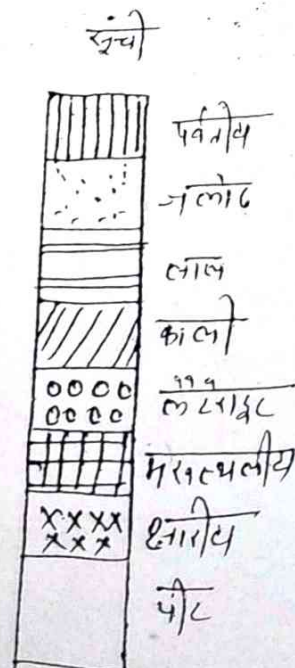 सूची
पर्वतीय
जलोढ
लाल
काली
लेटराइट
मरुस्थलीय
क्षारीय
पीट